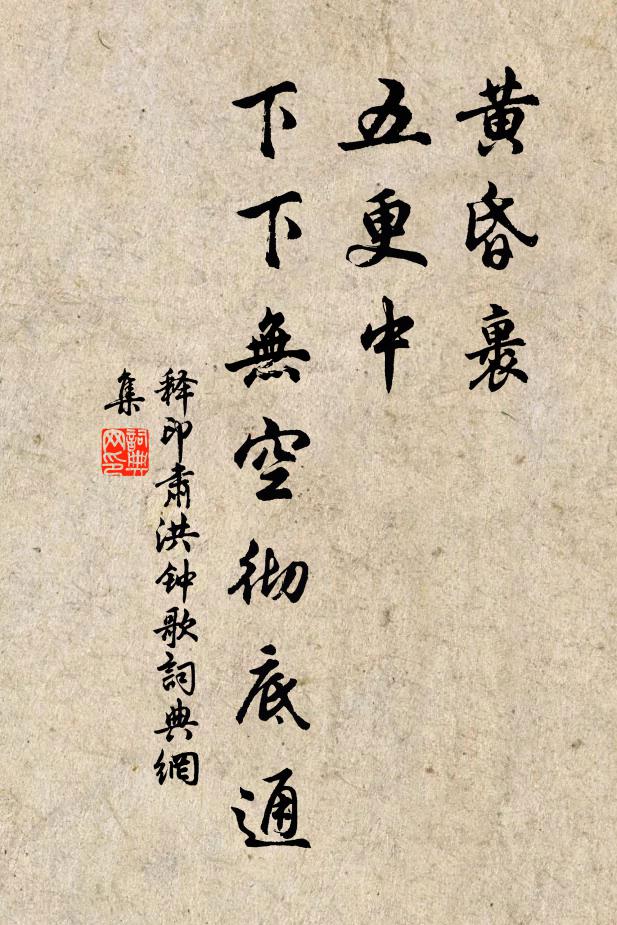 黄昏裹
五更中
下下無空彻底通
释印肃洪钟歌詞典網
集
詞典
网印